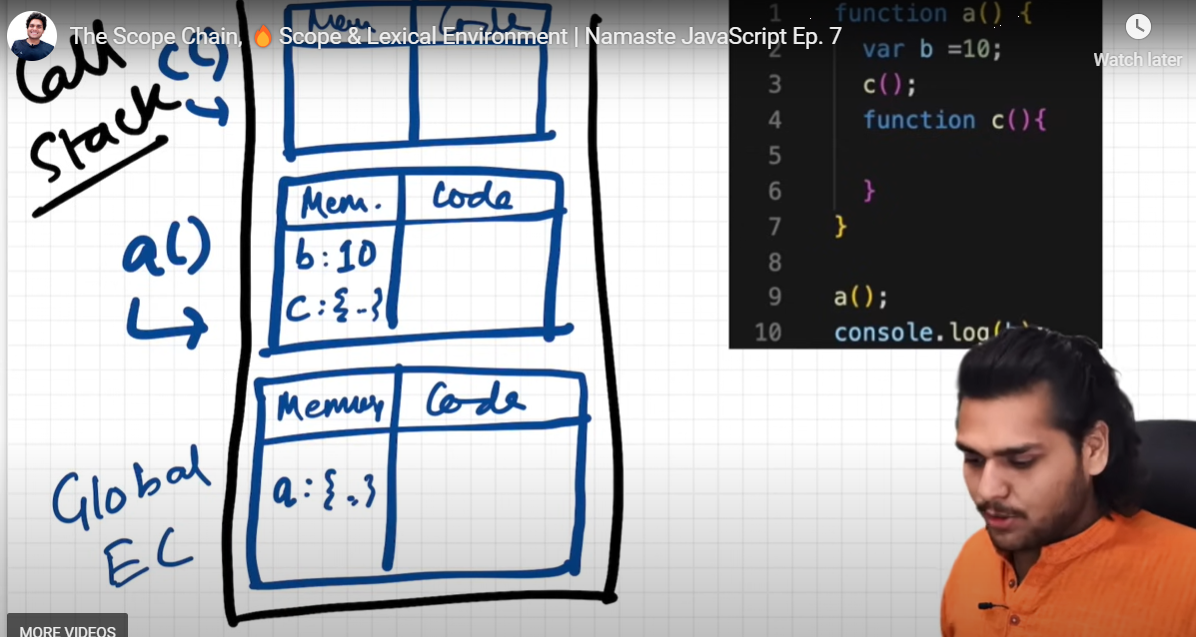 The Scope Chain, 🔥 Scope & Lexical Environment | Namaste JavaScript Ep. 7
Watch later
Call
Stack
c()
Mem. Code
a()
Mem. Code
b : 10
c : {..}
Global
EC
Memory Code
a : {..}
1 function a() {
2 var b =10;
3 c();
4 function c(){
5
6 }
7 }
8
9 a();
10 console.log(b);
MORE VIDEOS